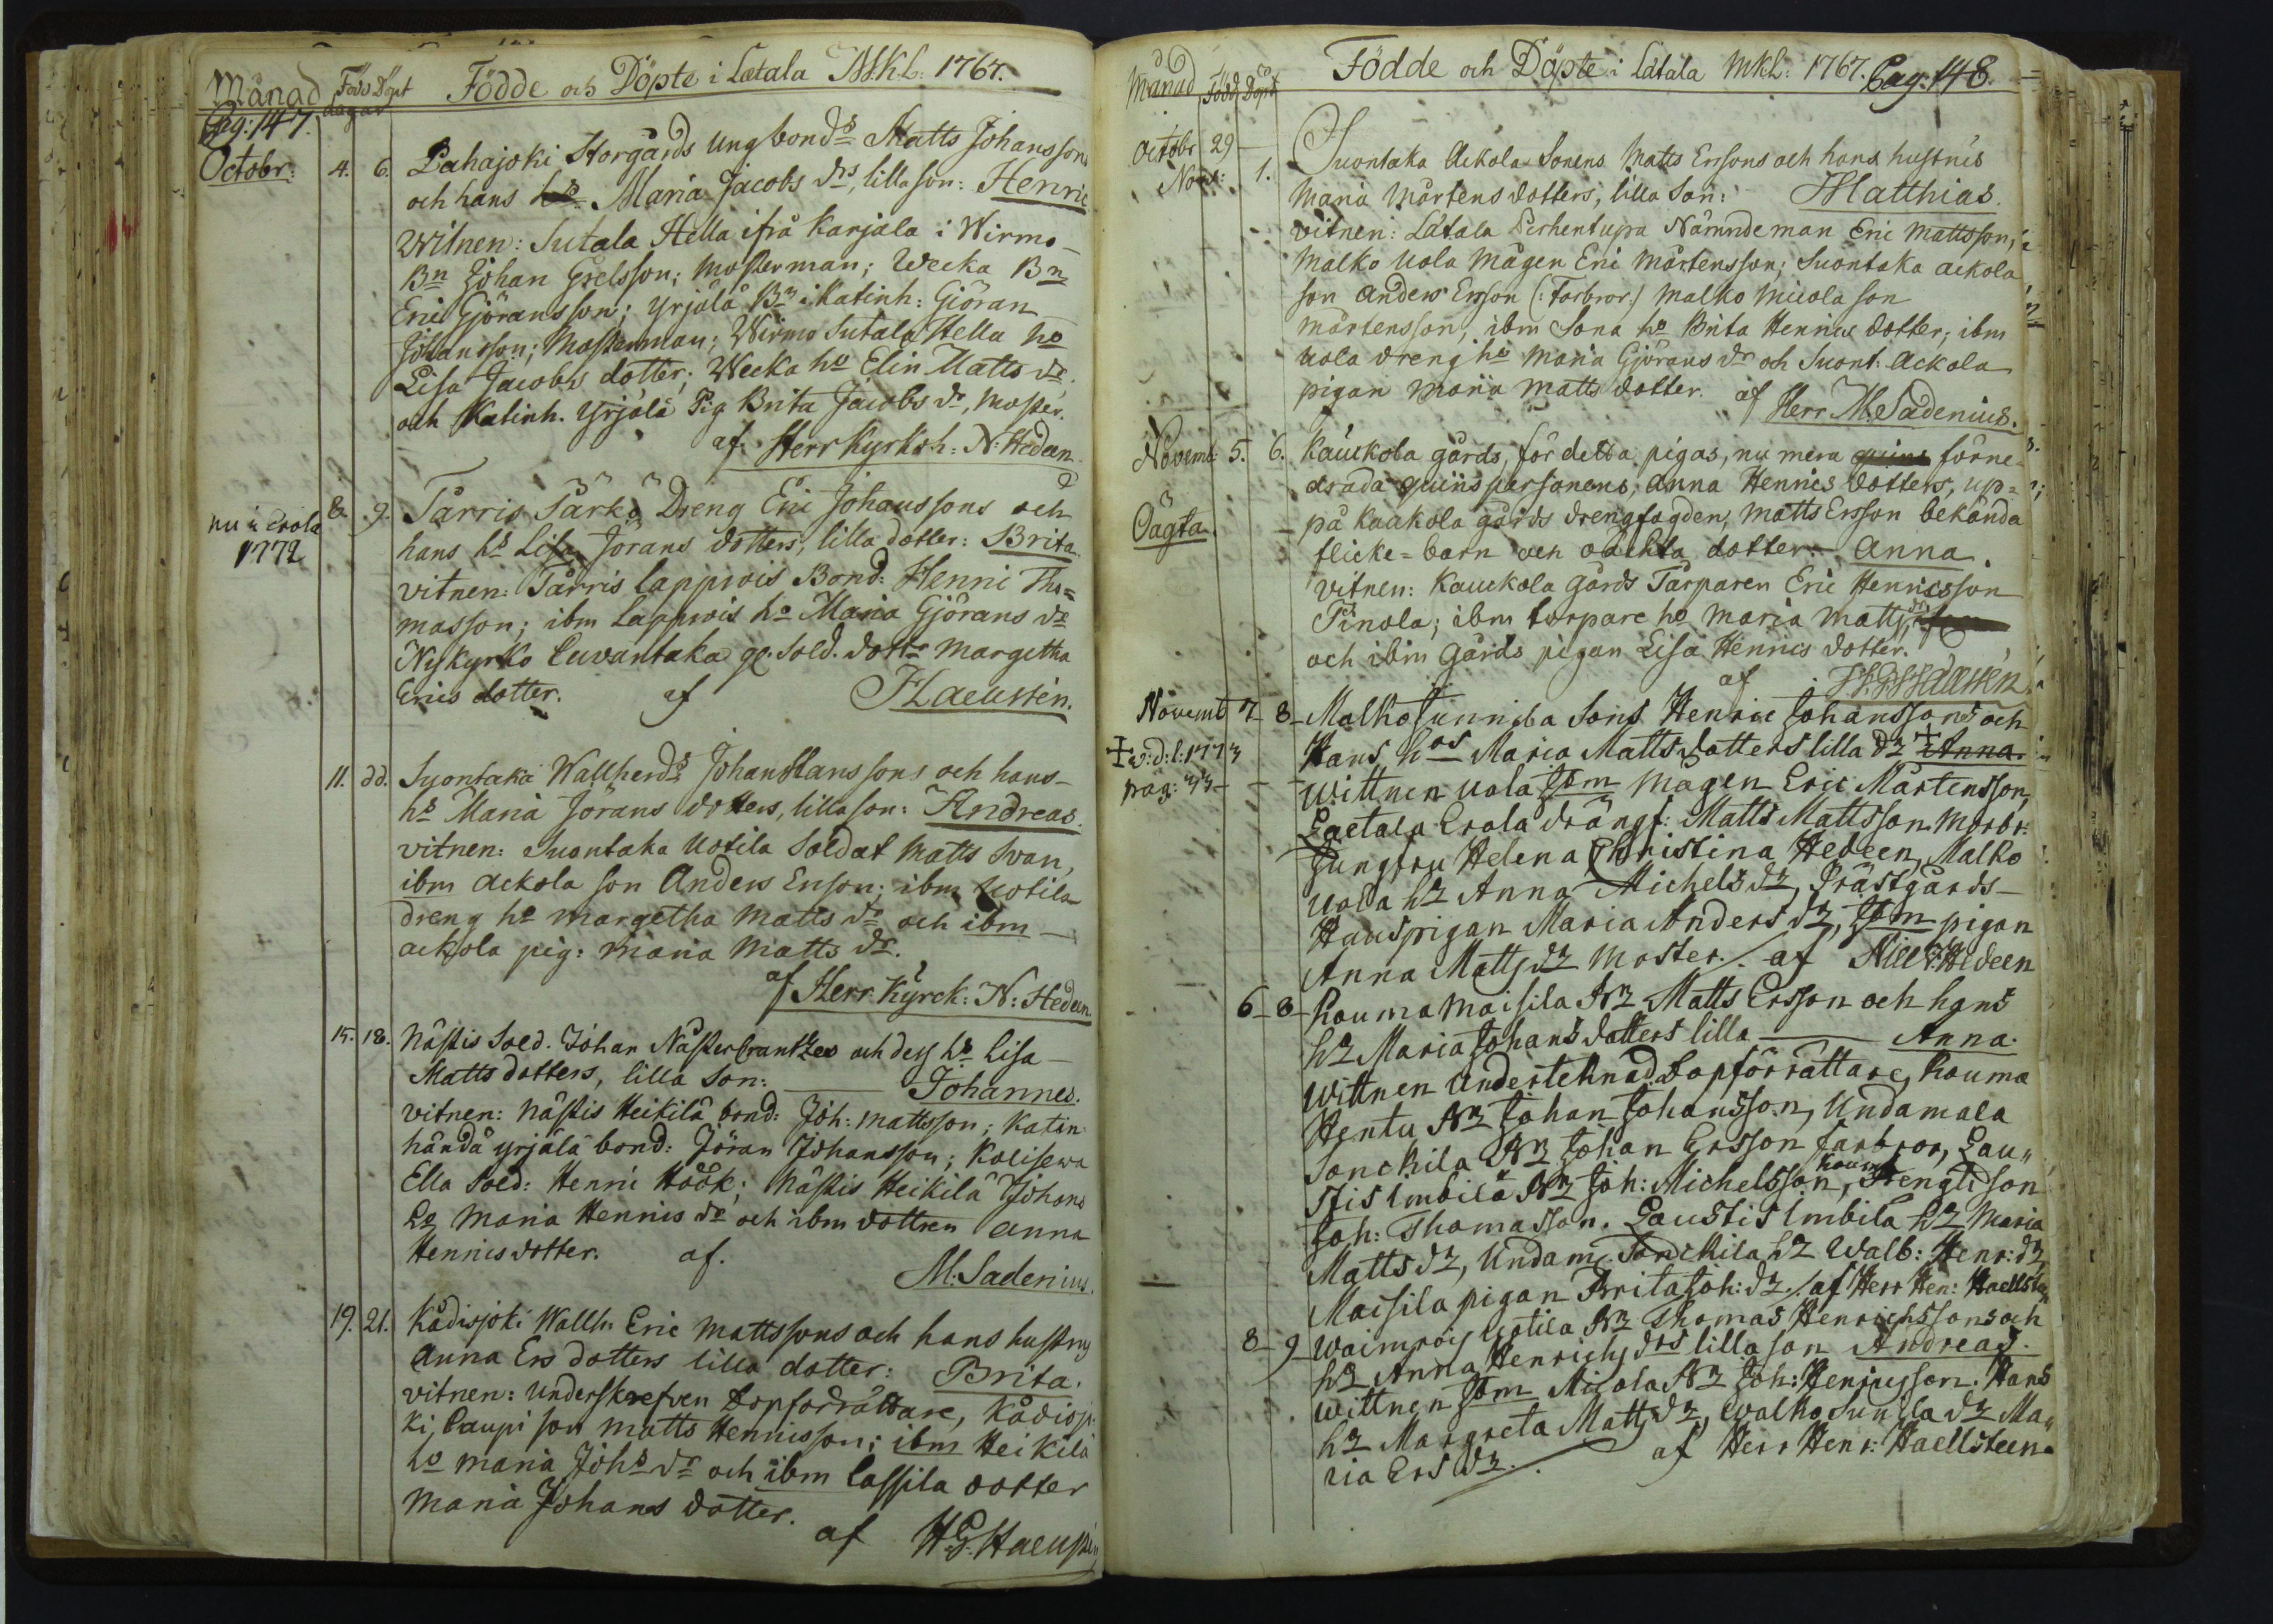 Månad Född Döpt Födde och Döpte i Lætala M.K.L: 1767.
Pag: 147. dagar
Octobr: 4. 6. Lahajoki Storgårds ungbonds Matts Johanssons
och hans hs Maria Jacobs drs, lilla son: Henric
Witnen: Sutala Hella ifrå Karjala i Wirmo
Bn Johan Grelsson; Mosterman; Wecka Bn
Eric Gjöransson; Yrjälä Bn i Katinh: Giöran
Johansson; Mosterman; Wirmo Sutala Hella ho
Lisa Jacobs dotter; Wecka ho Elin Matts dr.
och Katinh. Yrjälä Pig Brita Jacobs dr, Moster.
af Herr Kyrkoh: N: Hedeen
nu i Erola 1772
8. 9. Tärris Pärkö Dreng Eric Johanssons och
hans hs Lisa Jörans dotters, lilla dotter: Brita.
vitnen: Tärris lappwis Bond: Henric Tho=
masson; ibm Lappwis ho Maria Gjörans dr
Nykyrko Cuvantaka gl. Sold. dottr Margetha
Erics dotter. af Haeusten.
11. dd. Suontaka Wallherds Johan Hanssons och hans
hs Maria Jörans dotters, lilla son: Andreas.
vitnen: Suontaka Uotila Soldat Matts Svan,
ibm Ackola son Anders Ersson; ibm Uotila
dreng ho Margetha Matts dr och ibm
ackola pig: Maria Matts dr.
af Herr Kyrck: N: Hedeen.
15. 18. Nästis Sold. Johan Näster Crantzes och dess hs Lisa
Matts dotters, lilla son: Johannes.
vitnen: Nästis Heikilä bond: Joh: Mattsson; Katin
händä yrjälä bond: Jöran Johansson; Kalisewa
Ella Sold: Henric Höök; Nästis Heikilä Johans
ho Maria Henrics dr och ibm dottren Anna
Henrics dotter. af. M: Sadenius.
19. 21. Kådisjoki Wallh. Eric Mattssons och hans hustrus
Anna Ers dotters lilla dotter: Brita.
vitnen: underskrefven Dopförrättare, Kådisjo
ki Caupi son Matts Henricsson; ibm Heikilä
ho Maria Johs dr och ibm Lassila dotter
Maria Johans dotter. af H.G. Haeusten
Månad Född Döpt Födde och Döpte i Lätala MKL: 1767. Pag: 148.
Octobr 29 Suontaka Ackola Sonens Matts Erssons och hans hustrus
Novr: 1. Maria Mårtens dotters, lilla Son: Matthias.
vitnen: Lätala Perhentupa Nämndeman Eric Mattsson,
Malko Uola Mågen Eric Mårtensson; Suontaka ackola
son Anders Ersson (: Farbror:) Malko Micola son
Mårtensson, ibm Sona ho Brita Henrics dotter; ibm
Uola dreng ho Maria Gjörans dr och Suont: Ackola
pigan Maria Matts dotter. af Herr M. Sadenius.
Novemb: 5. 6. Kauckola gårds, för detta pigas, nu mera quins förne=
drada quinspersonens, Anna Henrics dotters, up=
Oägta. på Kaukola gårds drengfogden, Matts Ersson bekända
flicke=barn och oächta dotter: Anna.
vitnen: Kauckola gårds Tårparen Eric Henricsson
Pinola; ibm torpare ho Maria Matts dr
och ibm Gårds pigan Lisa Henrics dotter.
af H. G. Haeusten
Novemb 7 8 Malko Junnila Sons Henric Johanssons och
+ v: d: l: 1773 Hans hos Maria Matts dotters lilla dr + Anna.
pag: 473 Wittnen Uola Ibm Mågen Eric Mårtensson,
Laetala Erola drängf: Matts Mattsson Morbr:
Jungfru Helena Christina Hedeen, Malko
Uola hr Anna Michels dr, Prästgårds
Hauspigan Maria Anders dr, Ibm pigan
Anna Matts dr Moster. af Niels Hedeen
6 8 Kouma Maisila Br Matts Ersson och hans
hr Maria Johans dotters lilla Anna.
Wittnen Undertecknad Dopförrättare, Kouma
Hentu Br Johan Johansson, Undamala
Sonckila Br Johan Ersson farbror, Lau„
stis Imbilä Br Joh: Michelsson, Kouma Hengli son
Joh: Thomasson. Laustis Imbila hr Maria
Matts dr, Undam: Sonckila hr Walb: Henr: dr
Maisila pigan Brita Joh: dr. af Herr Hen: Haellsten
8 9 Waimpois Uotila Br Thomas Henrichssons och
hr Anna Henrichs drs lilla son Andreas.
Wittnen Ibm Micola Br Joh: Henricsson. Hans
hr Margreta Matts dr, Walko Sungla dr Ma„
ria Ers dr. af Herr Henr: Haellsteen.